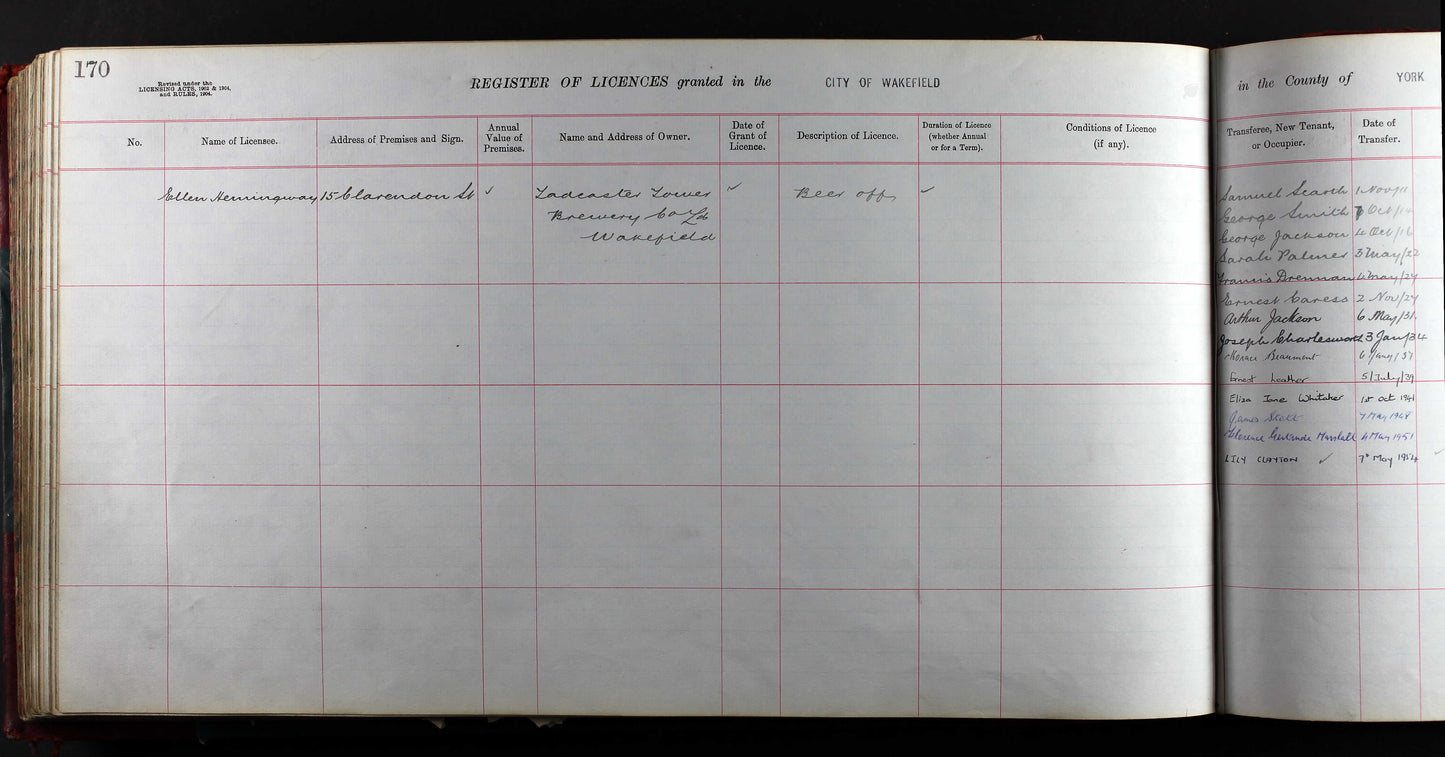 170
Revised under the
LICENSING ACTS, 1902 & 1904,
and RULES, 1904.
REGISTER OF LICENCES granted in the CITY OF WAKEFIELD in the County of YORK
No.
Name of Licensee.
Address of Premises and Sign.
Annual
Value of
Premises.
Name and Address of Owner.
Date of
Grant of
Licence.
Description of Licence.
Duration of Licence
(whether Annual
or for a Term).
Conditions of Licence
(if any).
Transferee, New Tenant,
or Occupier.
Date of
Transfer.
Ellen Hemingway 15 Clarendon St ✓ Tadcaster Tower ✓ Beer off ✓
Brewery Co Ld
Wakefield
Samuel Scarth 1 Nov/11
George Smith 7 Oct/14
George Jackson 4 Oct/16
Sarah Palmer 3 May/22
Francis Drennan May/27
Ernest Caress 2 Nov/27
Arthur Jackson 6 May/31
Joseph Charlesworth 3 Jan/34
Horace Beaumont 6 /37
Ernest Leather 5/July/39
Eliza Jane Whitaker 1st Oct 1941
James Scott 7 May 1948
Florence Gertrude Marshall 4 May 1951
LILY CLAYTON ✓ 7th May 1954 ✓